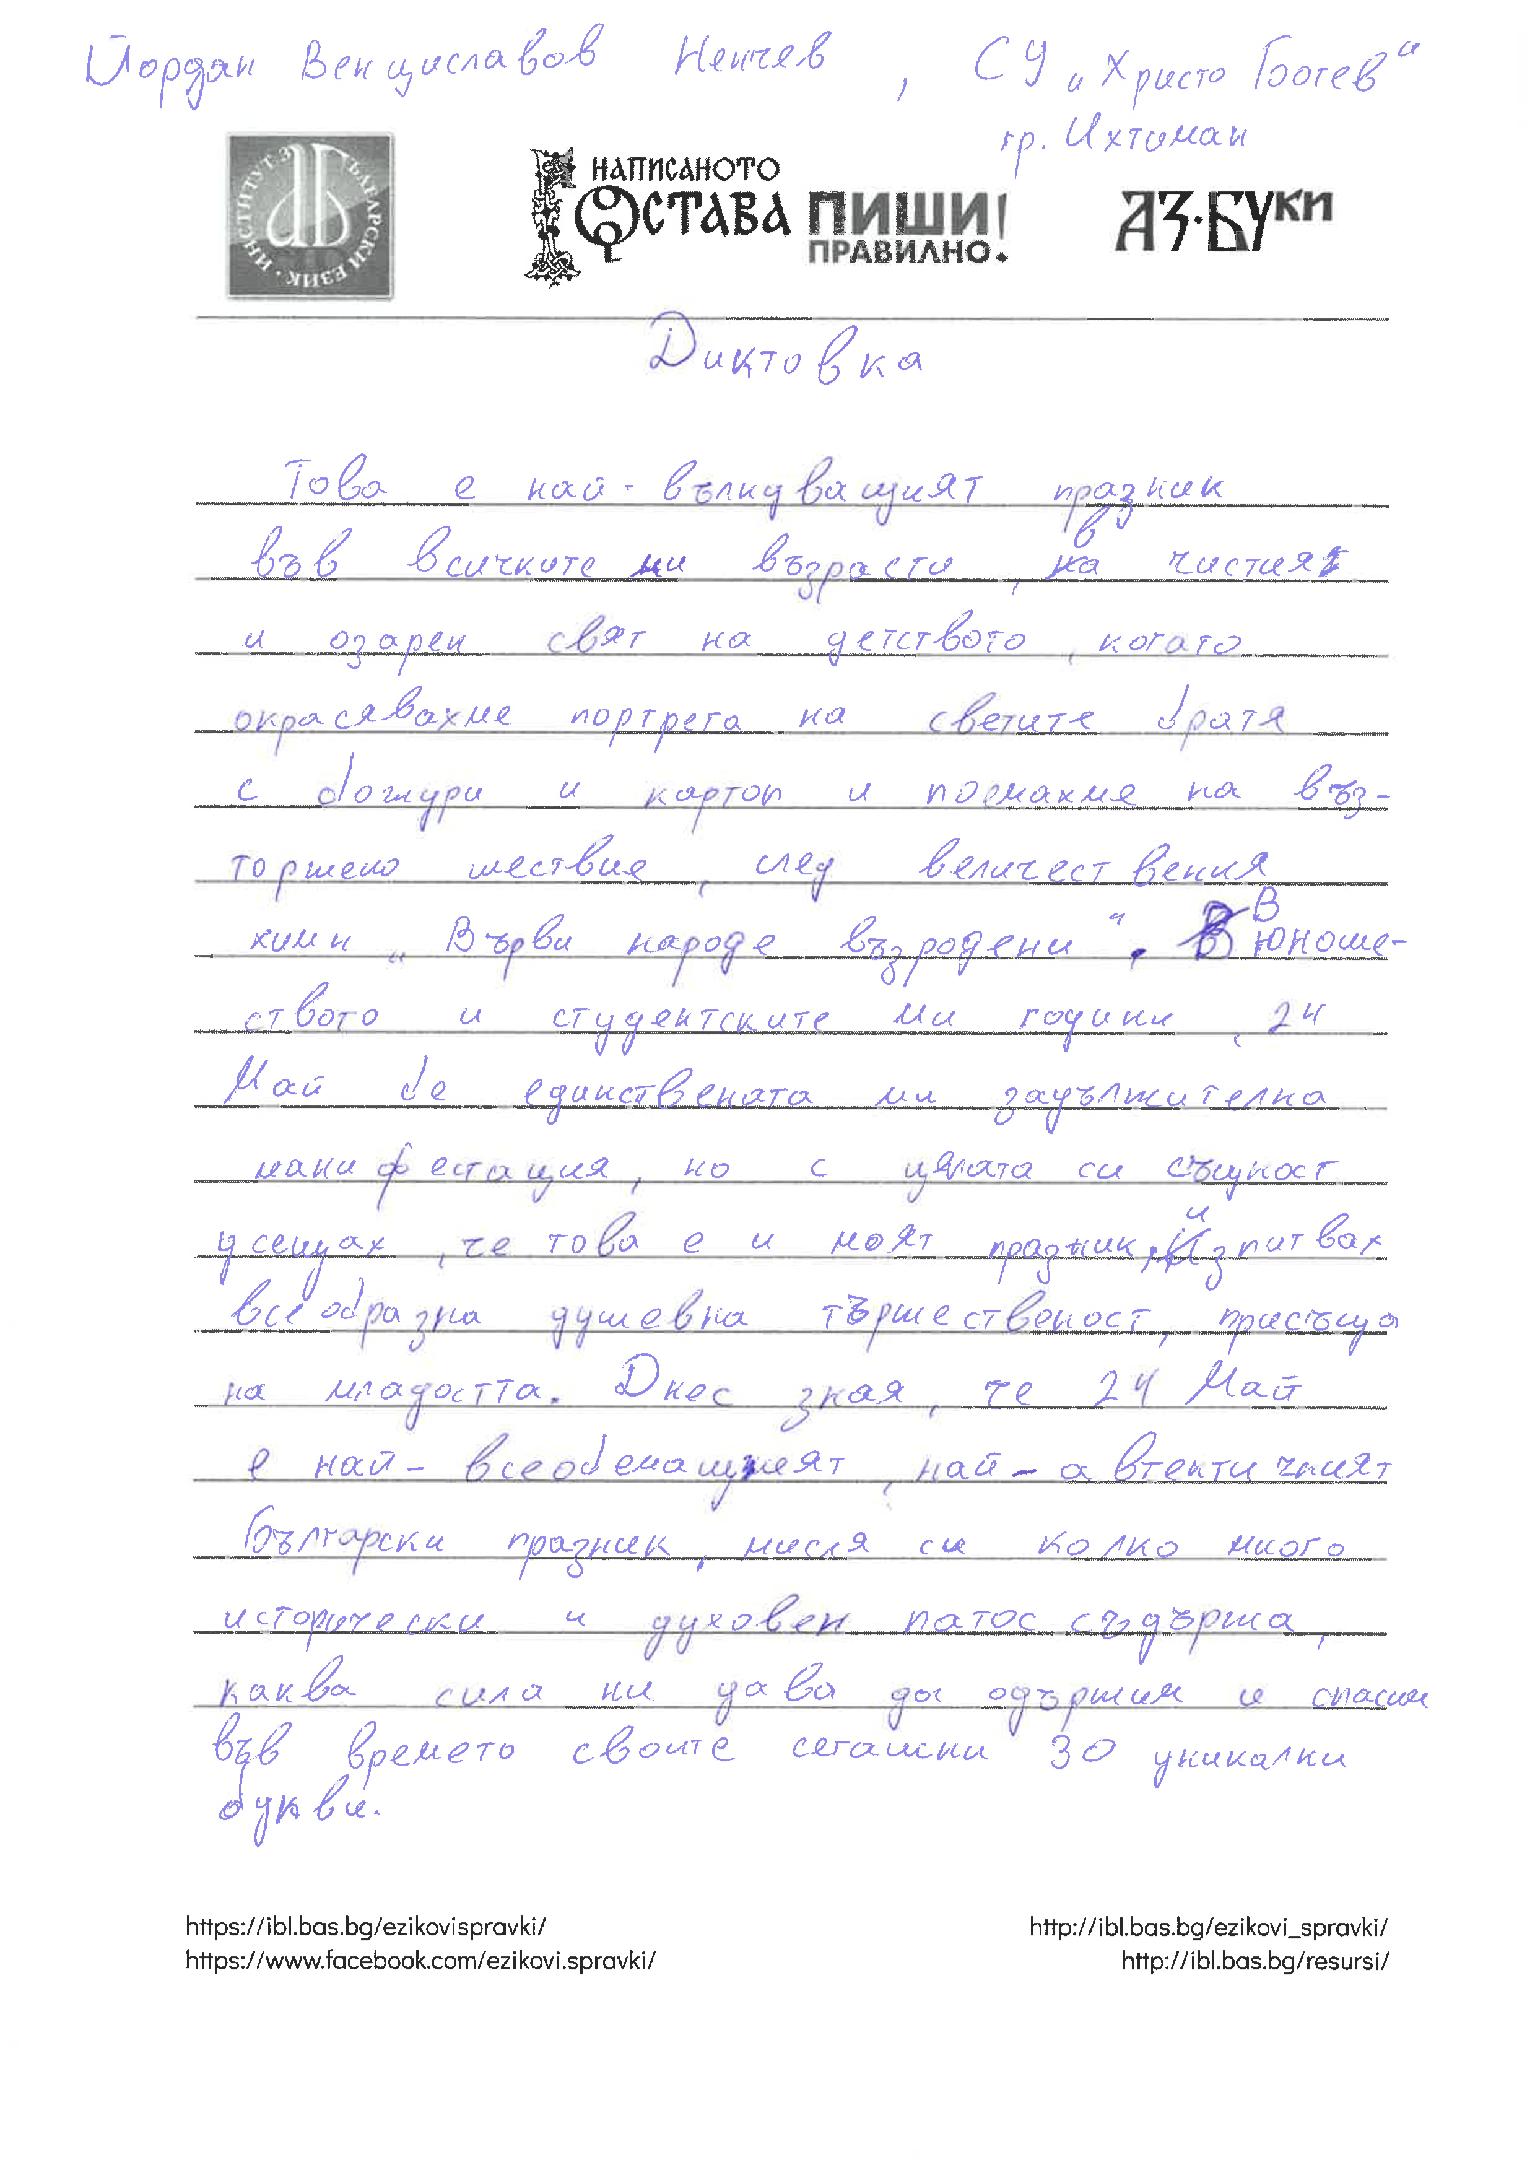 Йордан Венциславов Ненчев, СУ „Христо Ботев“
гр. Ихтиман
ИНСТИТУТ ЗА БЪЛГАРСКИ ЕЗИК
НАПИСАНОТО
ОСТАВА ПИШИ
ПРАВИЛНО!
АЗ·БУКИ
Диктовка
Това е най-вълнуващият празник
във всичките ни възрасти, в чистият
и озарен свят на детството, когато
окрасявахме портрета на светите братя
с божури и картон и поемахме на въз-
торжено шествие, след величествения
химн „Върви народе възродени“. В юноше-
ството и студентските ми години, 24
Май бе единствената ми задължителна
манифестация, но с цялата си същност
усещах, че това е и моят празник, изпитвах
всеобразна душевна тържественост, присъща
на младостта. Днес зная, че 24 Май
е най-всеобемащият, най-автентичният
български празник, мисля си колко много
исторически и духовен патос съдържа,
каква сила ни дава да одържим и спасим
във времето своите сегашни 30 уникални
букви.
https://ibl.bas.bg/ezikovispravki/ http://ibl.bas.bg/ezikovi_spravki/
https://www.facebook.com/ezikovi.spravki/ http://ibl.bas.bg/resursi/